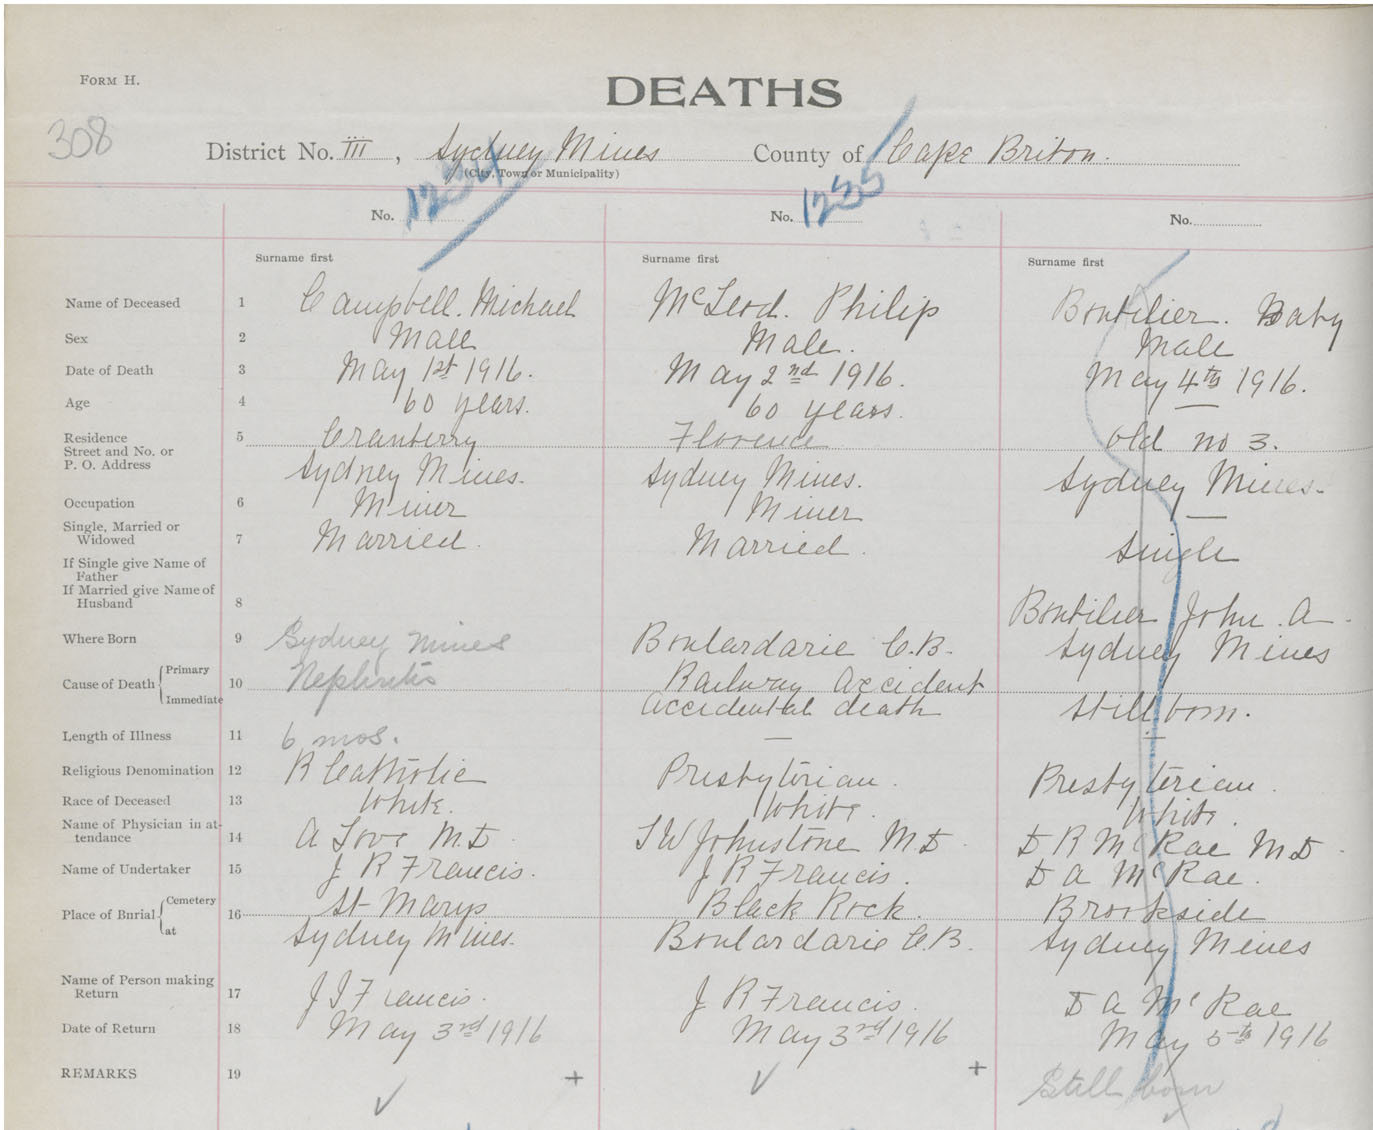 FORM H.
DEATHS
308
District No. III, Sydney Mines County of Cape Briton.
(City, Town or Municipality)
No. 1234 No. 1235 No.
Surname first Surname first Surname first
Name of Deceased 1 Campbell. Michael McLeod. Philip Boutilier. Baby
Sex 2 Male Male. Male
Date of Death 3 May 1st 1916. May 2nd 1916. May 4th 1916.
Age 4 60 years. 60 years. —
Residence 5 Cranberry Florence Old no 3.
Street and No. or
P. O. Address Sydney Mines. Sydney Mines. Sydney Mines.
Occupation 6 Miner Miner —
Single, Married or
Widowed 7 Married. Married. Single
If Single give Name of
Father
If Married give Name of
Husband 8 Boutilier John. A.
Where Born 9 Sydney Mines Boulardarie C.B. Sydney Mines
Cause of Death Primary
10 Nephritis Railway Accident
Immediate Accidental death Still born.
Length of Illness 11 6 mos. — —
Religious Denomination 12 R Catholic Presbyterian. Presbyterian.
Race of Deceased 13 White. White. White.
Name of Physician in at-
tendance 14 A Love M.D. L W Johnstone M.D. D R McRae M.D.
Name of Undertaker 15 J R Francis. J R Francis. D A McRae.
Place of Burial Cemetery
16 St Marys Black Rock. Brookside
at Sydney Mines. Boulardarie C.B. Sydney Mines
Name of Person making
Return 17 J J Francis. J R Francis. D A McRae
Date of Return 18 May 3rd 1916 May 3rd 1916 May 5th 1916
REMARKS 19 ✓ + ✓ + Still born